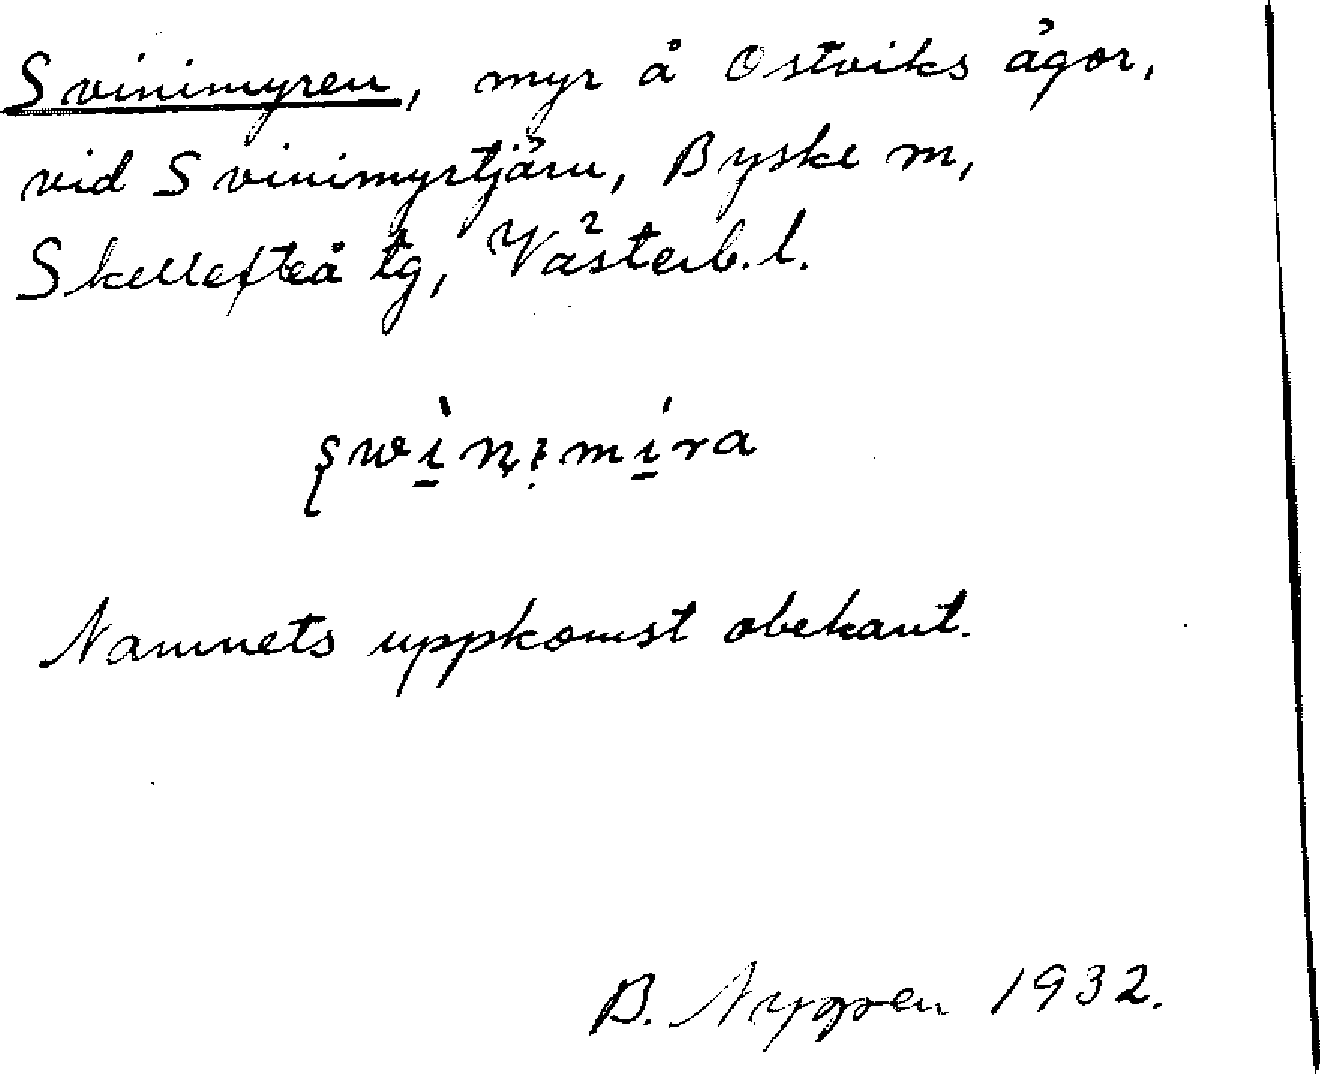 Svinimyren, myr å Ostviks ägor,
vid Svinimyrtjärn, Byske sn,
Skellefteå tg, Västerb. l.
Namnets uppkomst obekant.
B. Nygren 1932.